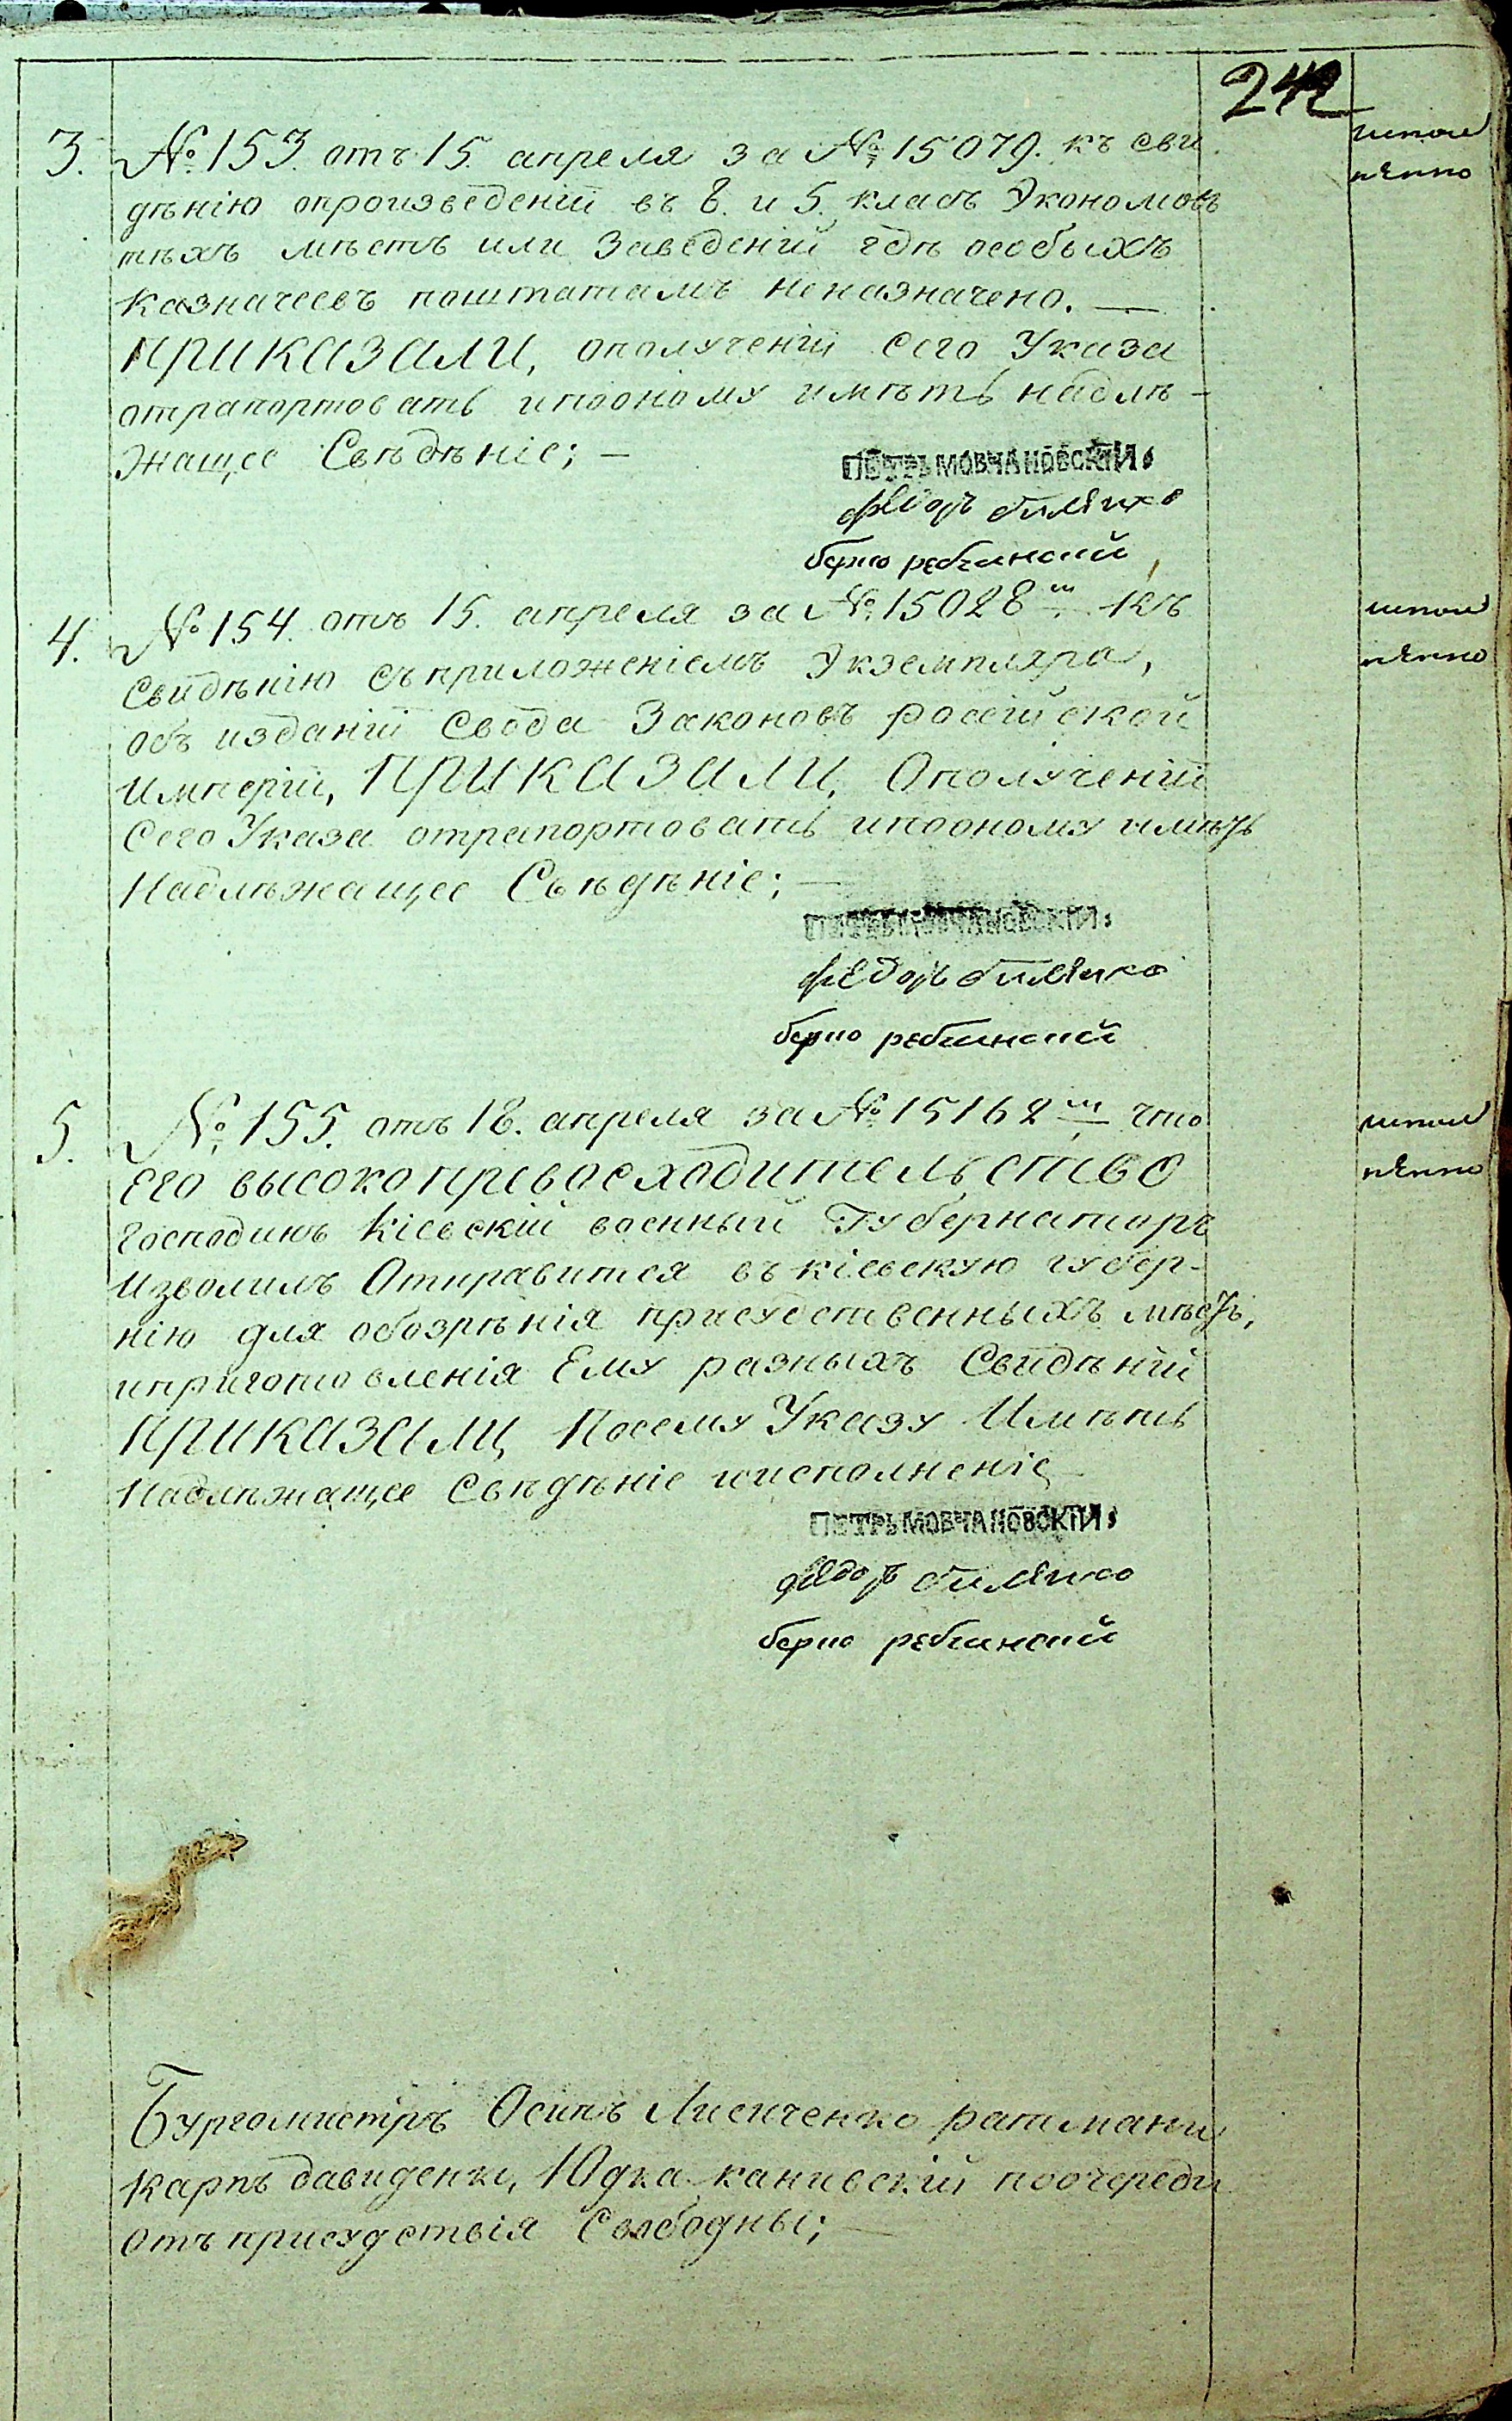 242
3. № 153. отъ 15. апреля за № 15079. къ сви
дѣнію опроизведеніи въ 8. и 5. класъ Экономовъ
тѣхъ мѣстъ или Заведеній гдѣ особыхъ
Казначеевъ поштатамъ неназначено. —
ПРИКАЗАЛИ, ополученіи сего Указа
отрапортовать ипооному имѣть надлѣ-
жащее Свѣдѣніе; —
исполнено
ПЕТРЪ МОВЧАНОВСКІЙ.
федоръ
берко
4. № 154. отъ 15. апреля за № 15028 м. Къ
Свидѣнію съприложеніемъ Экземпляра,
объ изданіи Свода Законовъ росеійской
Имперіи, ПРИКАЗАЛИ, Ополученіи
Сего Указа отрапортовать ипооному имѣть
Надлѣжащее Свѣдѣніе; —
исполнено
ПЕТРЪ МОВЧАНОВСКІЙ.
федоръ
берко
5. № 155. отъ 18. апреля за № 15162 м. что
Его высокопревосходительство
Господинъ Кіевскій военный Губернаторъ
Изволилъ Отправится въ кіевскую губер-
нію для обозрѣнія присудственныхъ мѣстъ,
иприготовленія Ему разныхъ Свидѣній
ПРИКАЗАЛИ, Посему Указу Имѣть
Надлѣжащее Свѣдѣніе иисполненіе —
исполнено
ПЕТРЪ МОВЧАНОВСКІЙ.
федоръ
берко
Бургомистръ Осипъ Лисиченко ратманы
Карпъ давиденко, Юдка каневскій поочереди
отъ присудствія Свободны; —